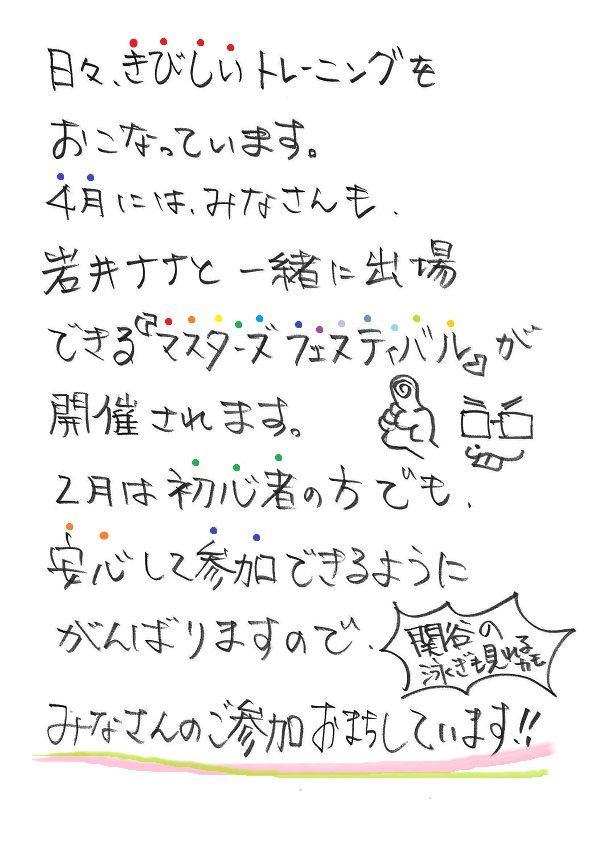 日々、きびしいトレーニングを
おこなっています。
4月には、みなさんも、
岩井ナナと一緒に出場
できる『マスターズフェスティバル』が
開催されます。
2月は初心者の方でも、
安心して参加できるように
がんばりますので、
関谷の
泳ぎも見れる
カモ
みなさんのご参加おまちしています!!